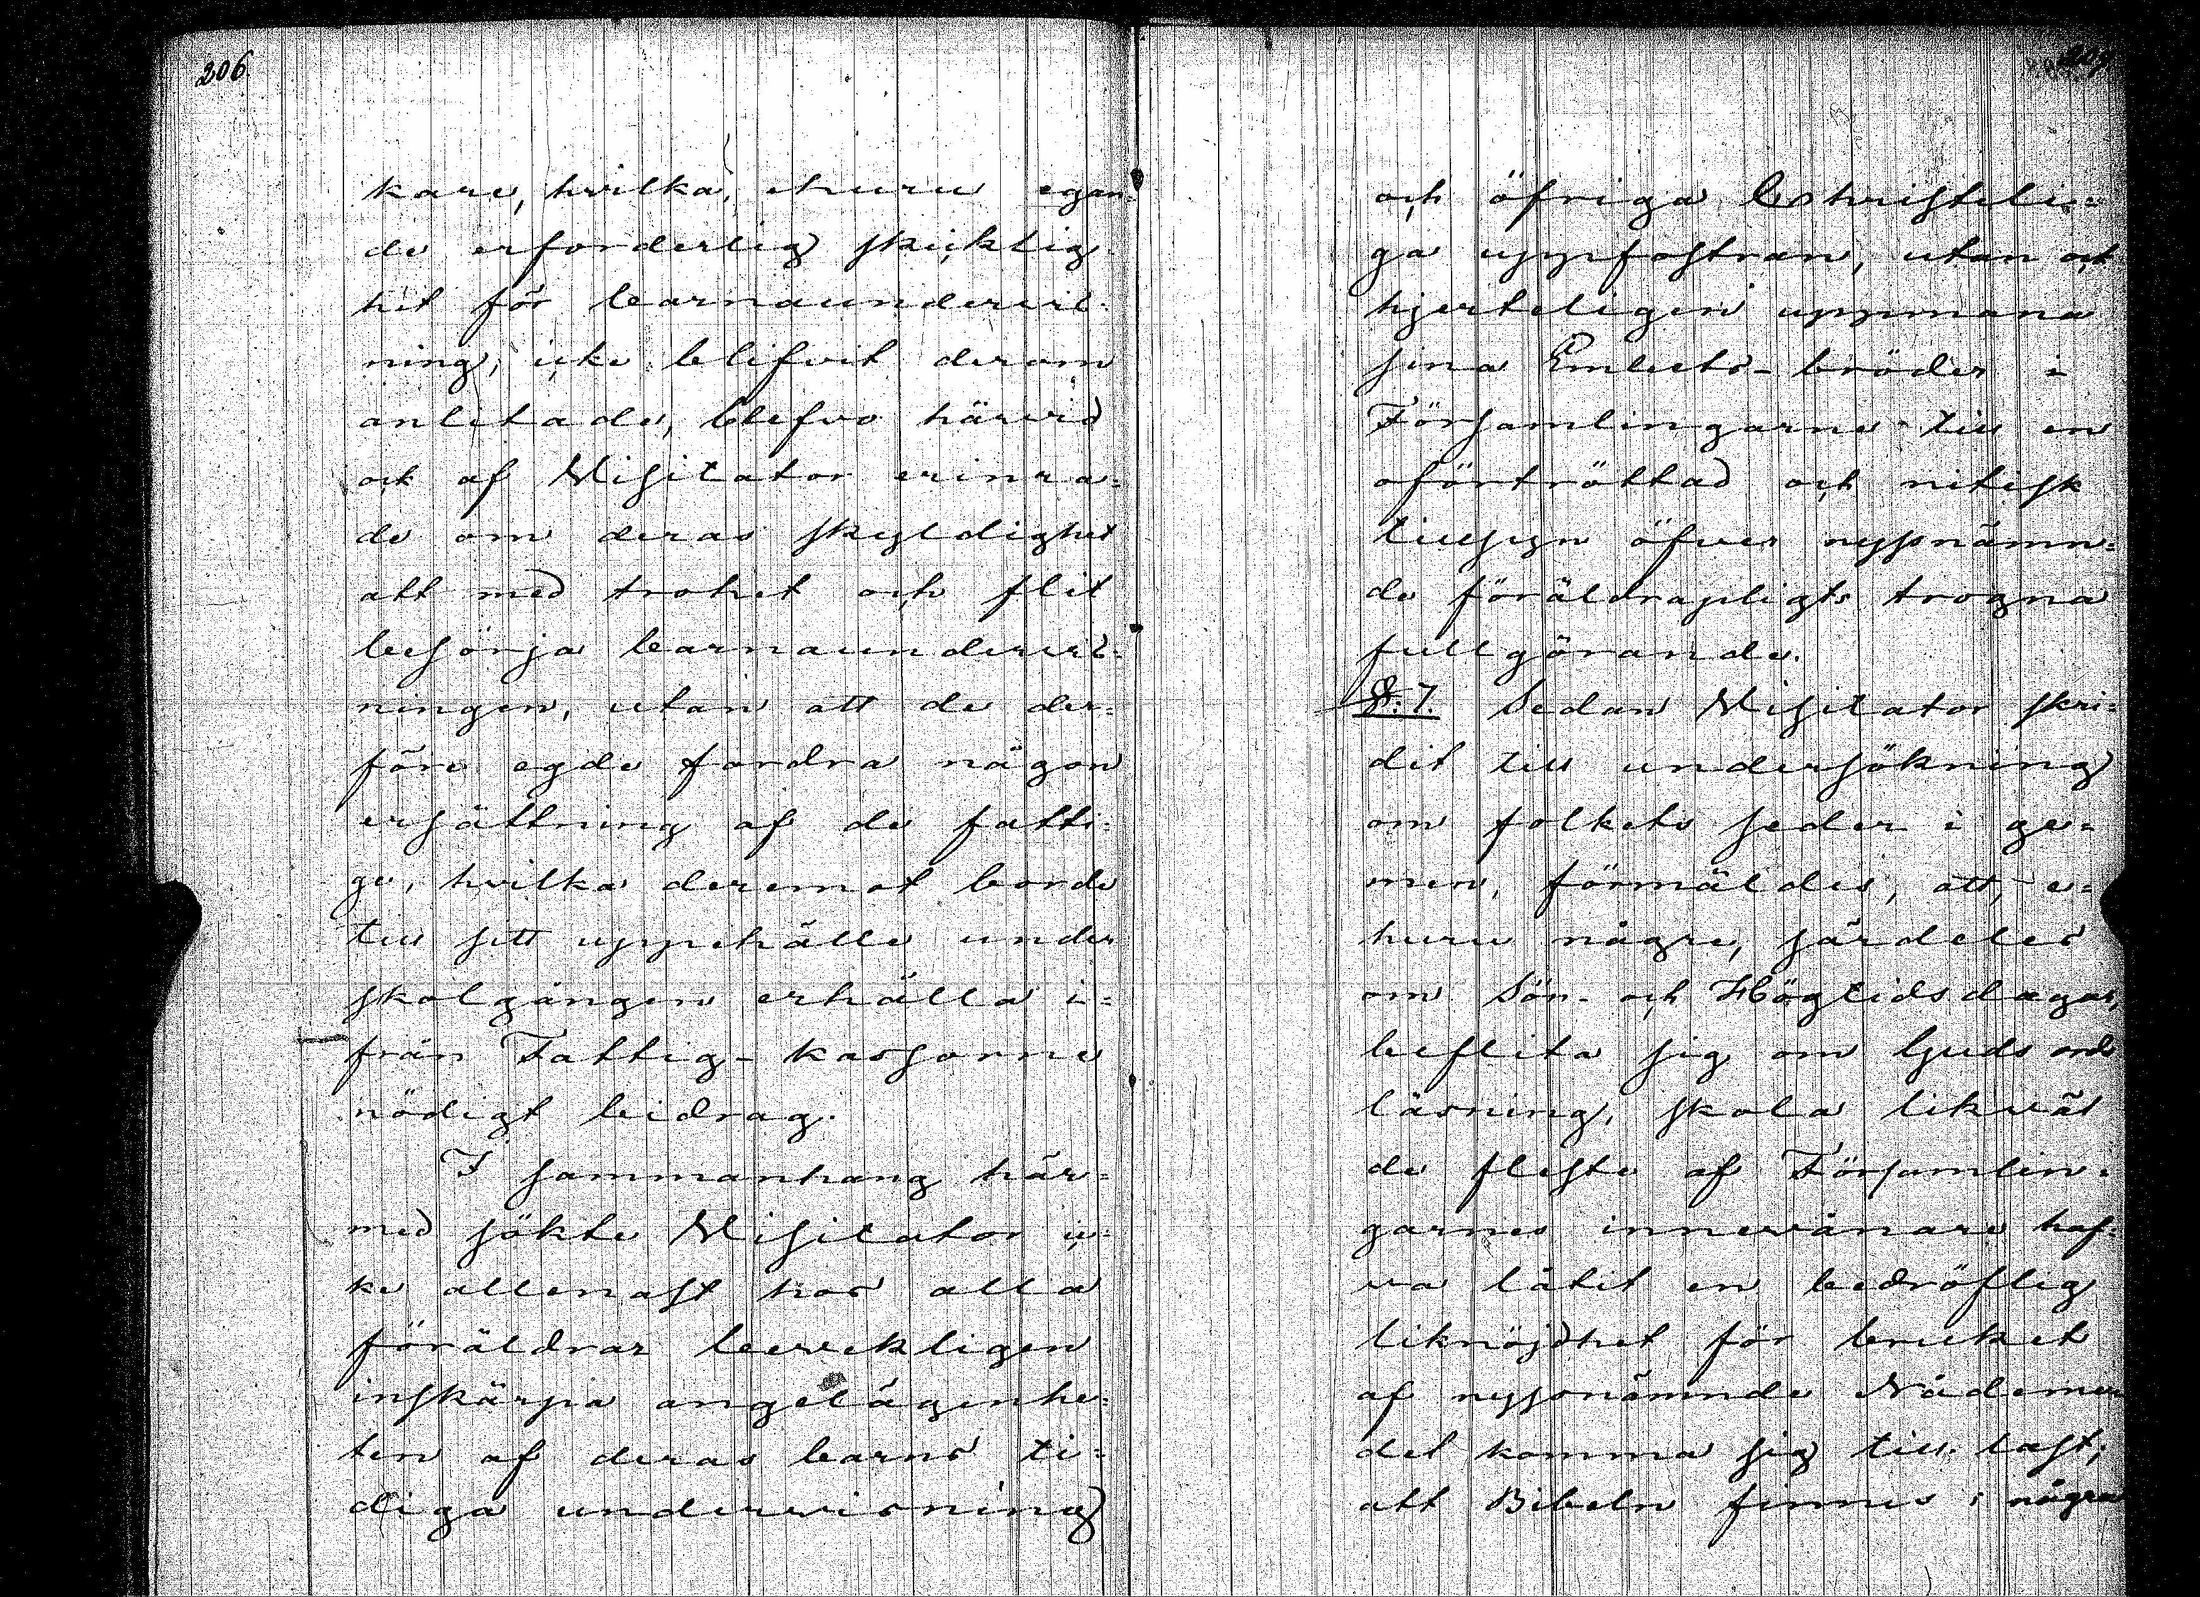 206
kare, hvilka, ehuru egan-
de erforderlig skicklig
het för barnaundervis-
ning, icke blifvit derom
anlitade, blefvo härvid
ock af Visitator erinra=
de om deras skyldighet
att med trohet och flit
besörja barnaundervis=
ningen, utan att de der=
före egde fordra någon
ersättning af de fatti=
ge, hvilka deremot borde
till sitt uppehälle under
skolgången erhålla i=
från Fattig-kassorne
nödigt bidrag.
I sammanhang här=
med sökte Visitator ic=
ke allenast hos alla
föräldrar beveckligen
inskärpa angelägenhe=
ten af deras barns ti=
diga undervisning
207
och öfriga Christeli=
ga uppfostran, utan ock
hjerteligen uppmana
sina Embets-bröder i
Församlingarne till en
oförtröttad och nitisk
tillsyn öfver nyssnämn=
de föräldrapligts trogna
fullgörande.
§. 7. Sedan Visitator skri=
dit till undersökning
om folkets seder i ge=
men, förmäldes, att, e=
huru någre, särdeles
om Sön- och Högtidsdagar,
beflita sig om Guds ords
läsning, skola likväl
de fleste af Församlin=
garnes innevånare haf=
va låtit en bedröflig
liknöjdhet för bruket
af nyssnämnde Nådeme
det komma sig till last;
att Bibeln finnes i några